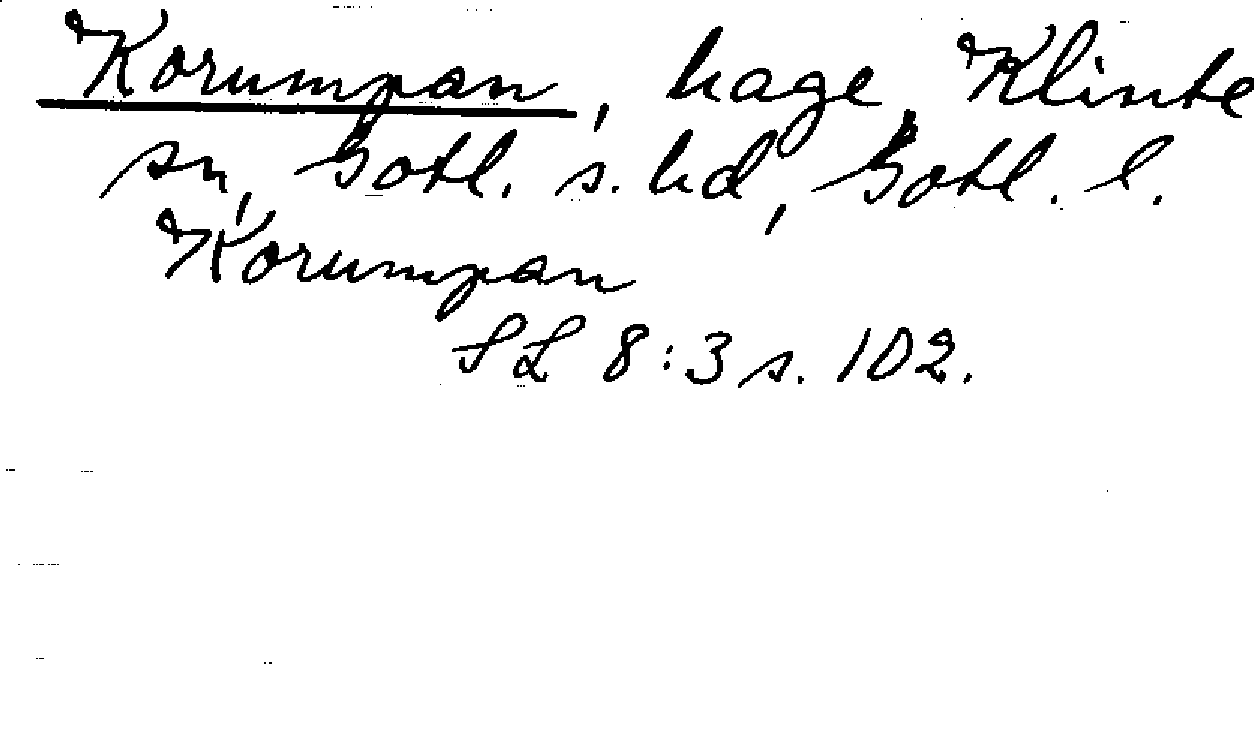 Korumpan, hage, Klinte
sn, Gotl. s. hd, Gotl. l.
Korumpan
SL 8:3 s. 102.